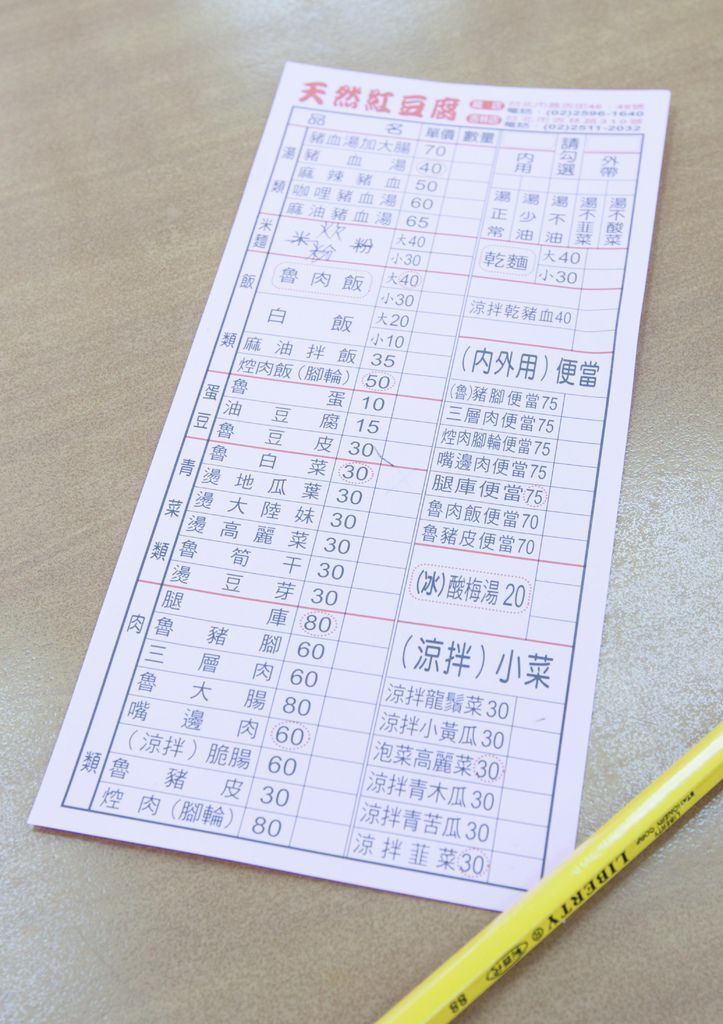 天然紅豆腐
電話：(02)2596-1640
電話：(02)2511-2032
品名 單價 數量
湯類
豬血湯加大腸 70
豬血湯 40
麻辣豬血 50
咖哩豬血湯 60
麻油豬血湯 65
米麵
米粉 大40
炊粉 小30
飯類
魯肉飯 大40
小30
白飯 大20
小10
麻油拌飯 35
焢肉飯(腳輪) 50
蛋豆
魯蛋 10
油豆腐 15
魯豆皮 30
青菜類
魯白菜 30
燙地瓜葉 30
燙大陸妹 30
燙高麗菜 30
魯筍干 30
燙豆芽 30
肉類
腿庫 80
魯豬腳 60
三層肉 60
魯大腸 80
嘴邊肉 60
(涼拌)脆腸 60
魯豬皮 30
焢肉(腳輪) 80
請勾選
內用 外帶
湯正常 湯少油 湯不油 湯不韭菜 湯不酸菜
乾麵 大40
小30
涼拌乾豬血40
(內外用)便當
(魯)豬腳便當75
三層肉便當75
焢肉腳輪便當75
嘴邊肉便當75
腿庫便當75
魯肉飯便當70
魯豬皮便當70
(冰)酸梅湯 20
(涼拌)小菜
涼拌龍鬚菜30
涼拌小黃瓜30
泡菜高麗菜30
涼拌青木瓜30
涼拌青苦瓜30
涼拌韭菜30
LIBERTY
88